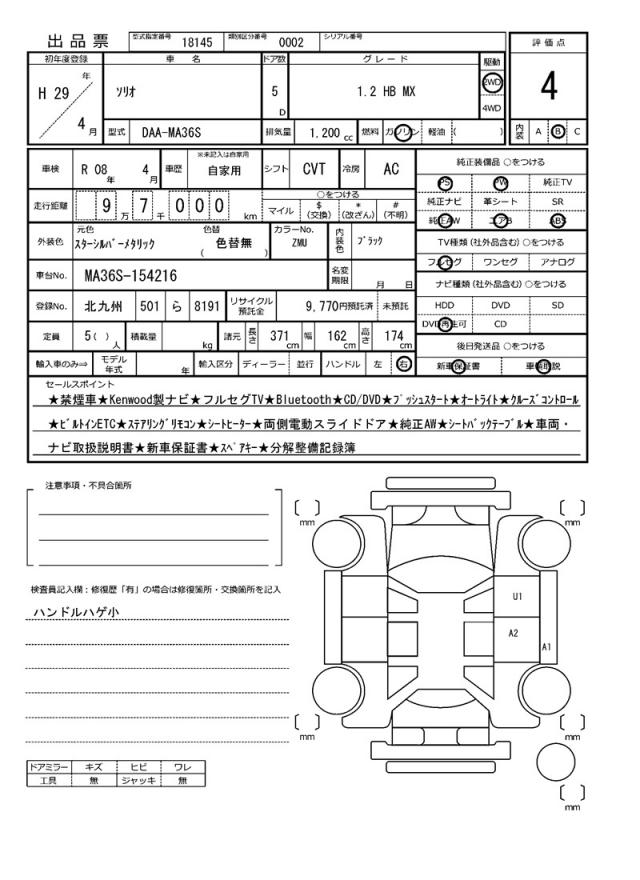 出品票 型式指定番号 18145 類別区分番号 0002 シリアル番号
評価点
4
内装 A B C
初年度登録 車名 ドア数 グレード 駆動
H 29 年 4 月 ソリオ 5 D 1.2 HB MX 2WD 4WD
型式 DAA-MA36S 排気量 1.200 cc 燃料 ガソリン 軽油 ( )
車検 R 08 年 4 月 車歴 ※未記入は自家用 自家用 シフト CVT 冷房 AC
走行距離 9 万 7 千 0 0 0 km ○をつける マイル $ (交換) * (改ざん) # (不明)
外装色 元色 スターシルバーメタリック 色替 ( 色替無 ) カラーNo. ZMU 内装色 ブラック
車台No. MA36S-154216 名変期限 月 日
登録No. 北九州 501 ら 8191 リサイクル預託金 9,770円預託済 未預託
定員 5( ) 人 積載量 kg 諸元 長さ 371 cm 幅 162 cm 高さ 174 cm
輸入車のみ⇒ モデル年式 年 輸入区分 ディーラー 並行 ハンドル 左 右
純正装備品 ○をつける
PS PW 純正TV
純正ナビ 革シート SR
純正AW エアB ABS
TV種類 (社外品含む) ○をつける
フルセグ ワンセグ アナログ
ナビ種類 (社外品含む) ○をつける
HDD DVD SD
DVD再生可 CD
後日発送品 ○をつける
新車保証書 車輌取説
セールスポイント
★禁煙車★Kenwood製ナビ★フルセグTV★Bluetooth★CD/DVD★プッシュスタート★オートライト★クルーズコントロール
★ビルトインETC★ステアリングリモコン★シートヒーター★両側電動スライドドア★純正AW★シートバックテーブル★車両・
ナビ取扱説明書★新車保証書★スペアキー★分解整備記録簿
注意事項・不具合箇所
検査員記入欄：修復歴「有」の場合は修復箇所・交換箇所を記入
ハンドルハゲ小
ドアミラー キズ ヒビ ワレ
工具 無 ジャッキ 無
mm
mm
U1
A2
A1
mm
mm
mm